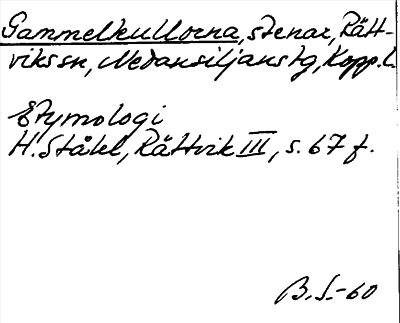 Gammelkullorna, stenar, Rätt-
vikssn, Nedansiljanstg, Kopp.l.
Etymologi
H. Ståhl, Rättvik III, s. 67 f.
B.S.-60